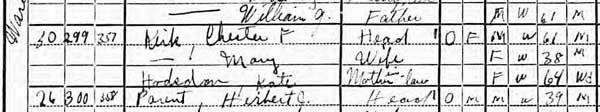 — William J. Father M W 61 M
30 299 357 Kirk, Chester F Head 1 O F M W 61 M
— , Mary Wife F W 38 M
Hodsdon Kate Mother-law F W 64 Wd
26 300 358 Parent, Herbert J. Head O M M W 39 M